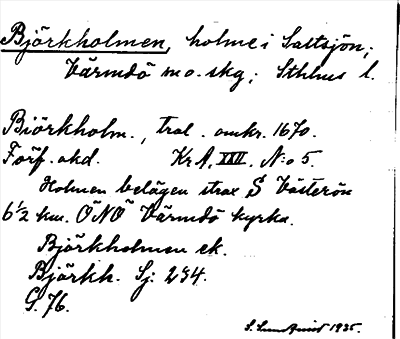 Björkholmen, holme i Saltsjön,
Värmdö md o. skg; Sthlms l.
Biörkholm., trol. omkr. 1670.
Förf. okd. Kr A. XXII. N:o 5.
Holmen belägen strax S Västerön
6 1/2 km. ÖNÖ Värmdö kyrka.
Björkholmen ek.
Björkh. Sj: 234.
G. 76.
1935.